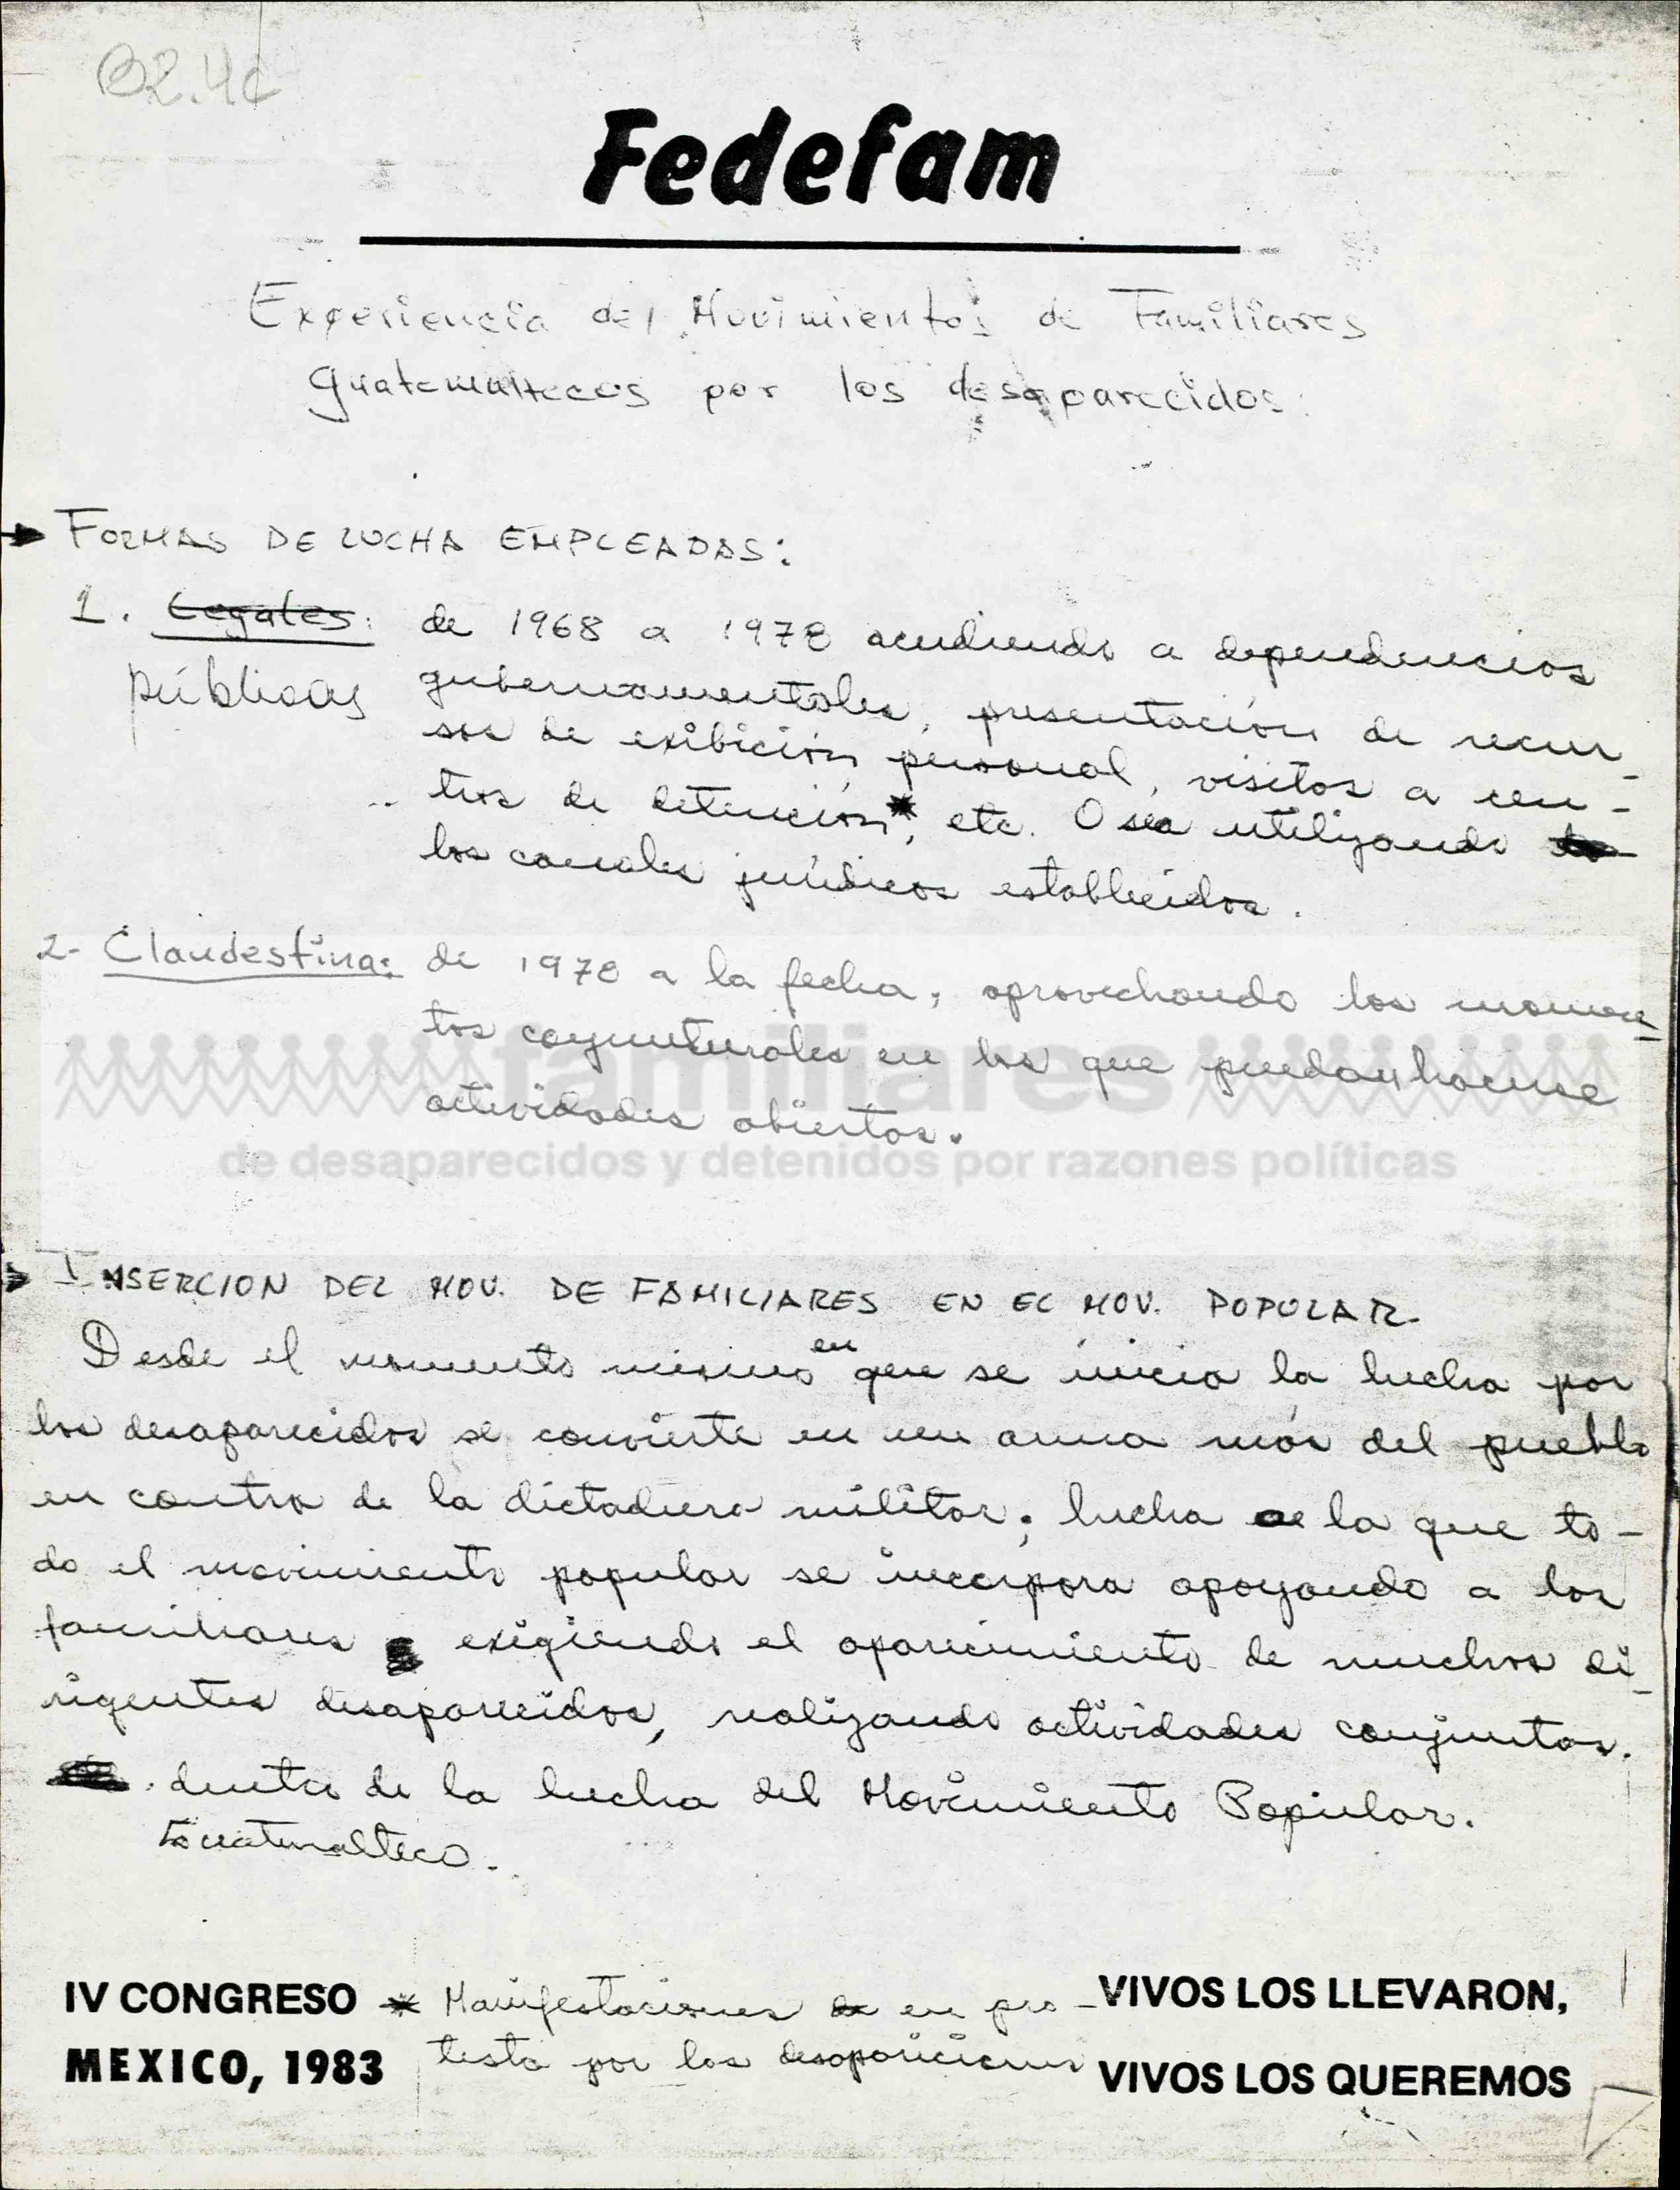 B2.4c
Fedefam
Experiencia del Movimientos de Familiares
Guatemaltecos por los desaparecidos:
FORMAS DE LUCHA EMPLEADAS:
1. Legales: de 1968 a 1978 acudiendo a dependencias
públicas gubernamentales, presentación de recur-
sos de exibición personal, visitas a cen-
tros de detención*, etc. O sea utilizando
los canales jurídicos establecidos.
2- Clandestina: de 1978 a la fecha, aprovechando los momen-
tos coyunturales en los que puedan hacerse
actividades abiertas.
familiares
de desaparecidos y detenidos por razones políticas
INSERCION DEL MOV. DE FAMILIARES EN EL MOV. POPULAR-
Desde el momento mismo en que se inicia la lucha por
los desaparecidos se convierte en un arma más del pueblo
en contra de la dictadura militar; lucha a la que to-
do el movimiento popular se incorpora apoyando a los
familiares exigiendo el aparecimiento de muchos di-
rigentes desaparecidos, realizando actividades conjuntas.
dentro de la lucha del Movimiento Popular.
Guatemalteco.
IV CONGRESO * Manifestaciones en pro- VIVOS LOS LLEVARON,
MEXICO, 1983 testa por las desapariciones VIVOS LOS QUEREMOS